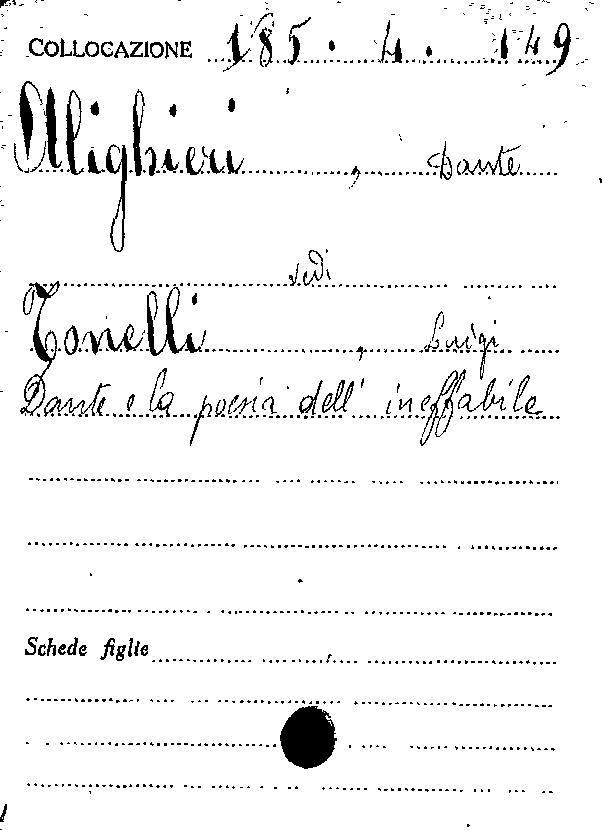 COLLOCAZIONE 185.4.149
Alighieri, Dante
vedi
Tonelli, Luigi
Dante e la poesia dell'ineffabile
Schede figlie